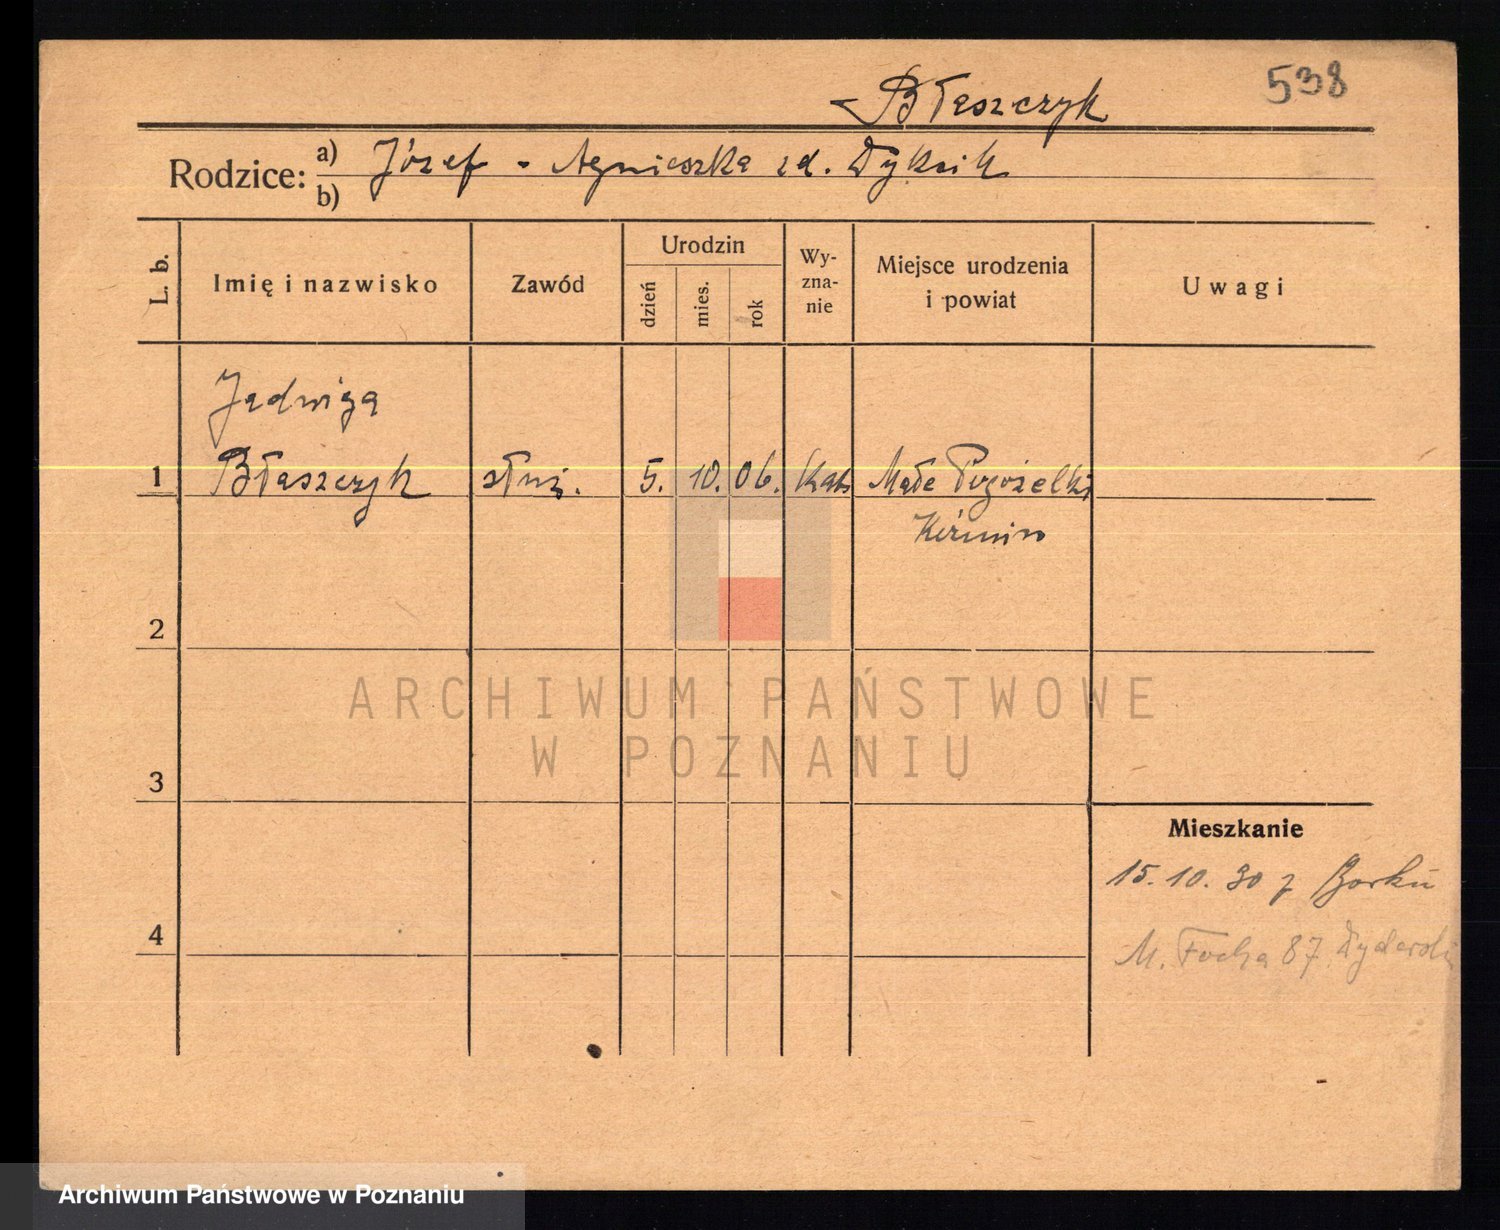 538
Błaszczyk
Rodzice: a) Józef - Agnieszka zd.
b)
L. b.
Imię i nazwisko
Zawód
Urodzin
dzień
mies.
rok
Wy-
zna-
nie
Miejsce urodzenia
i powiat
Uwagi
Jadwiga
1 Błaszczyk służ. 5. 10. 06. Kat. Małe
2
3
4
Mieszkanie
15. 10. 30 z Borku
M. Focha 87
ARCHIWUM PAŃSTWOWE
W POZNANIU
Archiwum Państwowe w Poznaniu